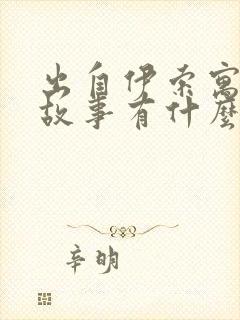 出自伊索寓
故事有什麼
辛明